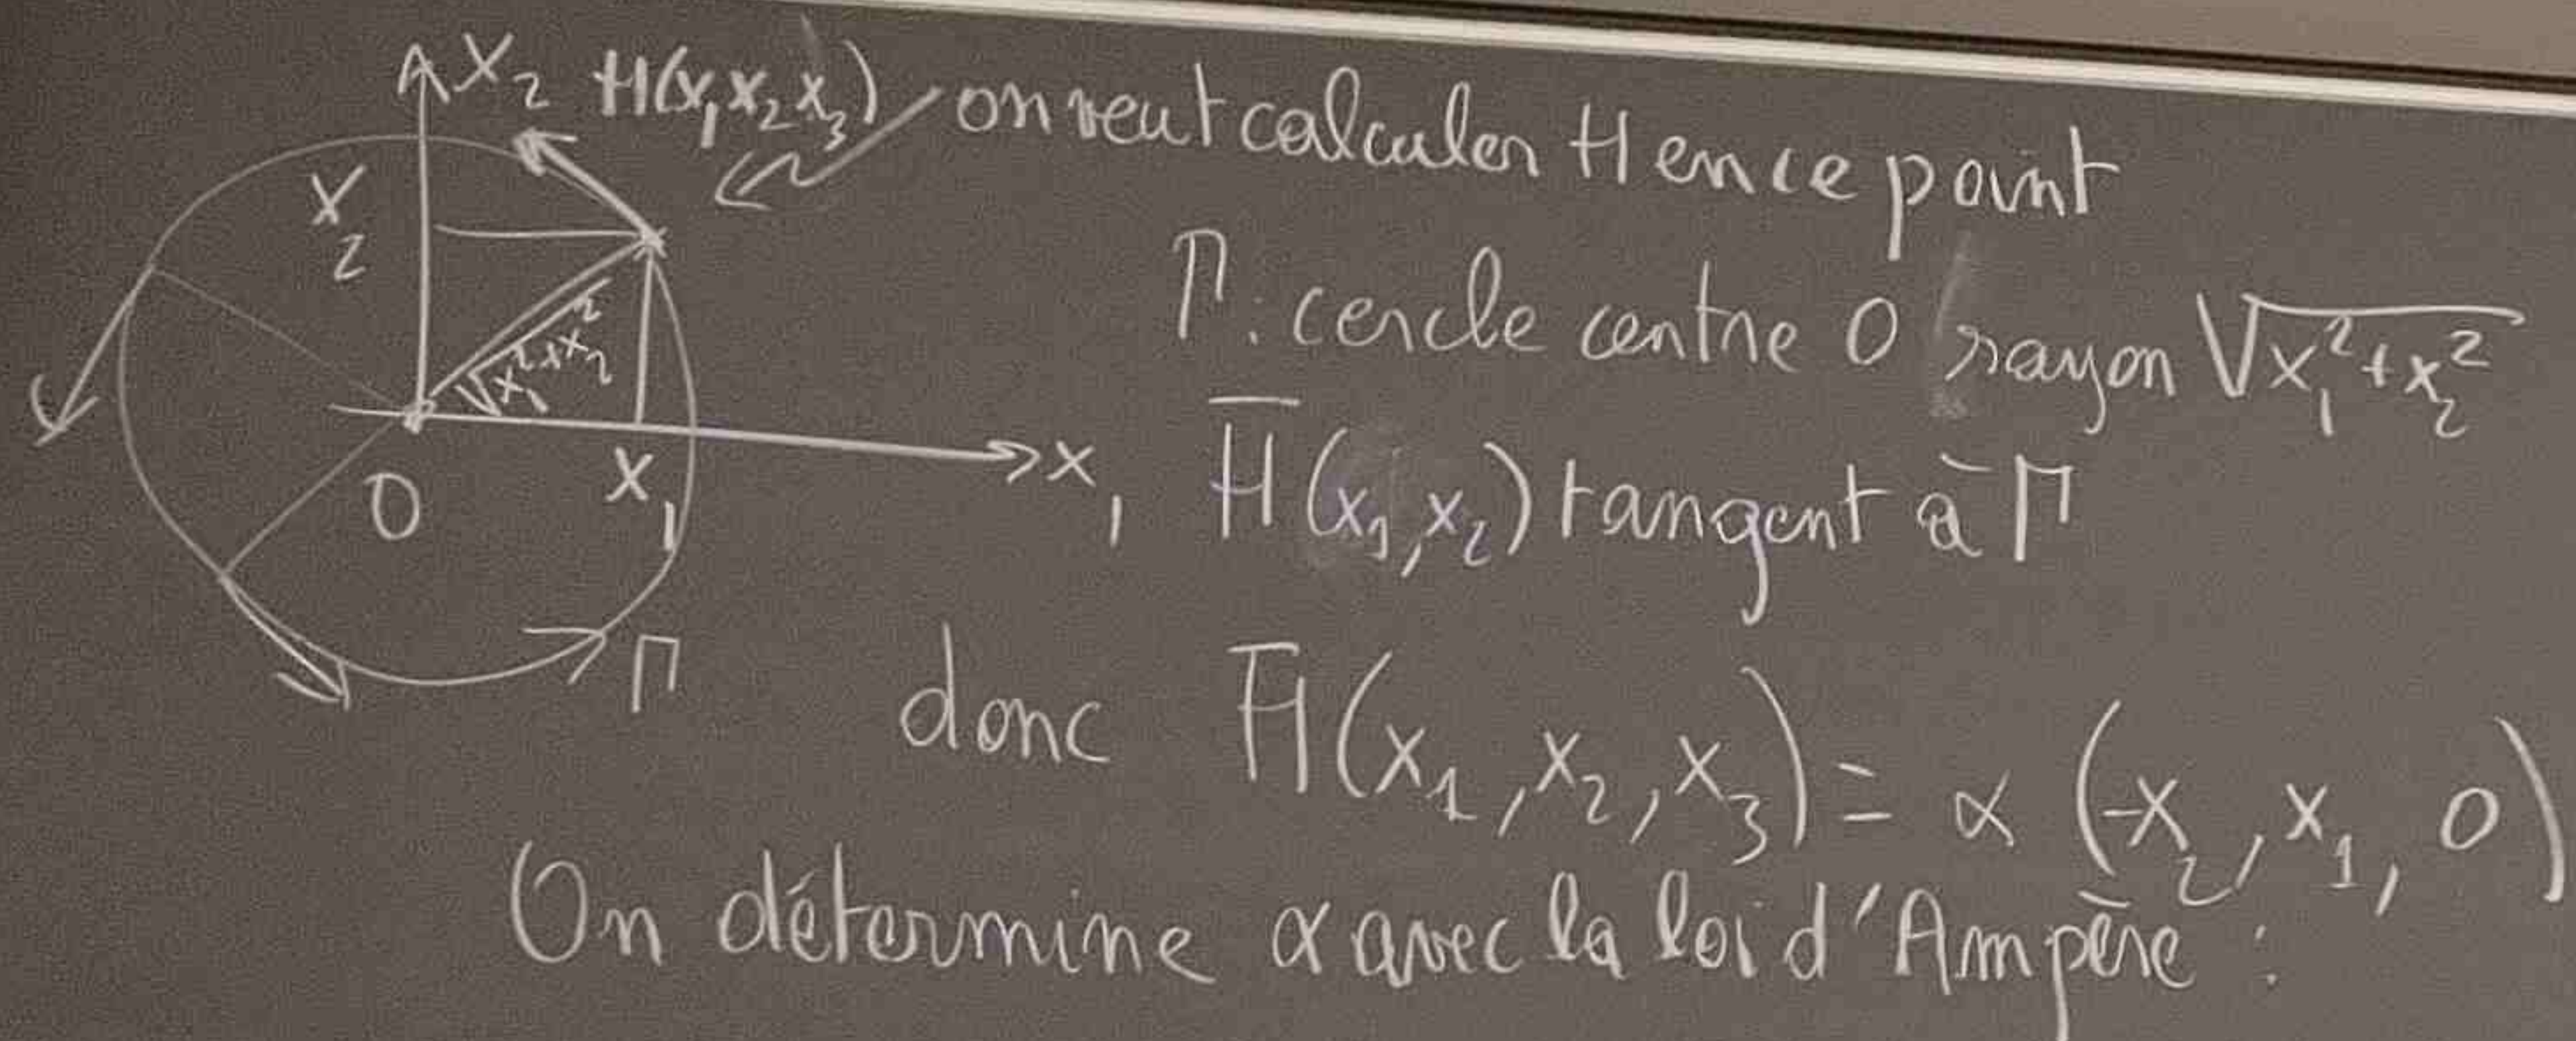 x₂ H(x₁x₂x₃) on veut calculer H en ce point
x₂
Γ: cercle centre O rayon √x₁²+x₂²
√x₁²+x₂²
O x₁ x₁ H̅(x₁,x₂) tangent à Γ
Γ
donc H̅(x₁,x₂,x₃) = α (-x₂, x₁, 0)
On détermine α avec la loi d'Ampère :